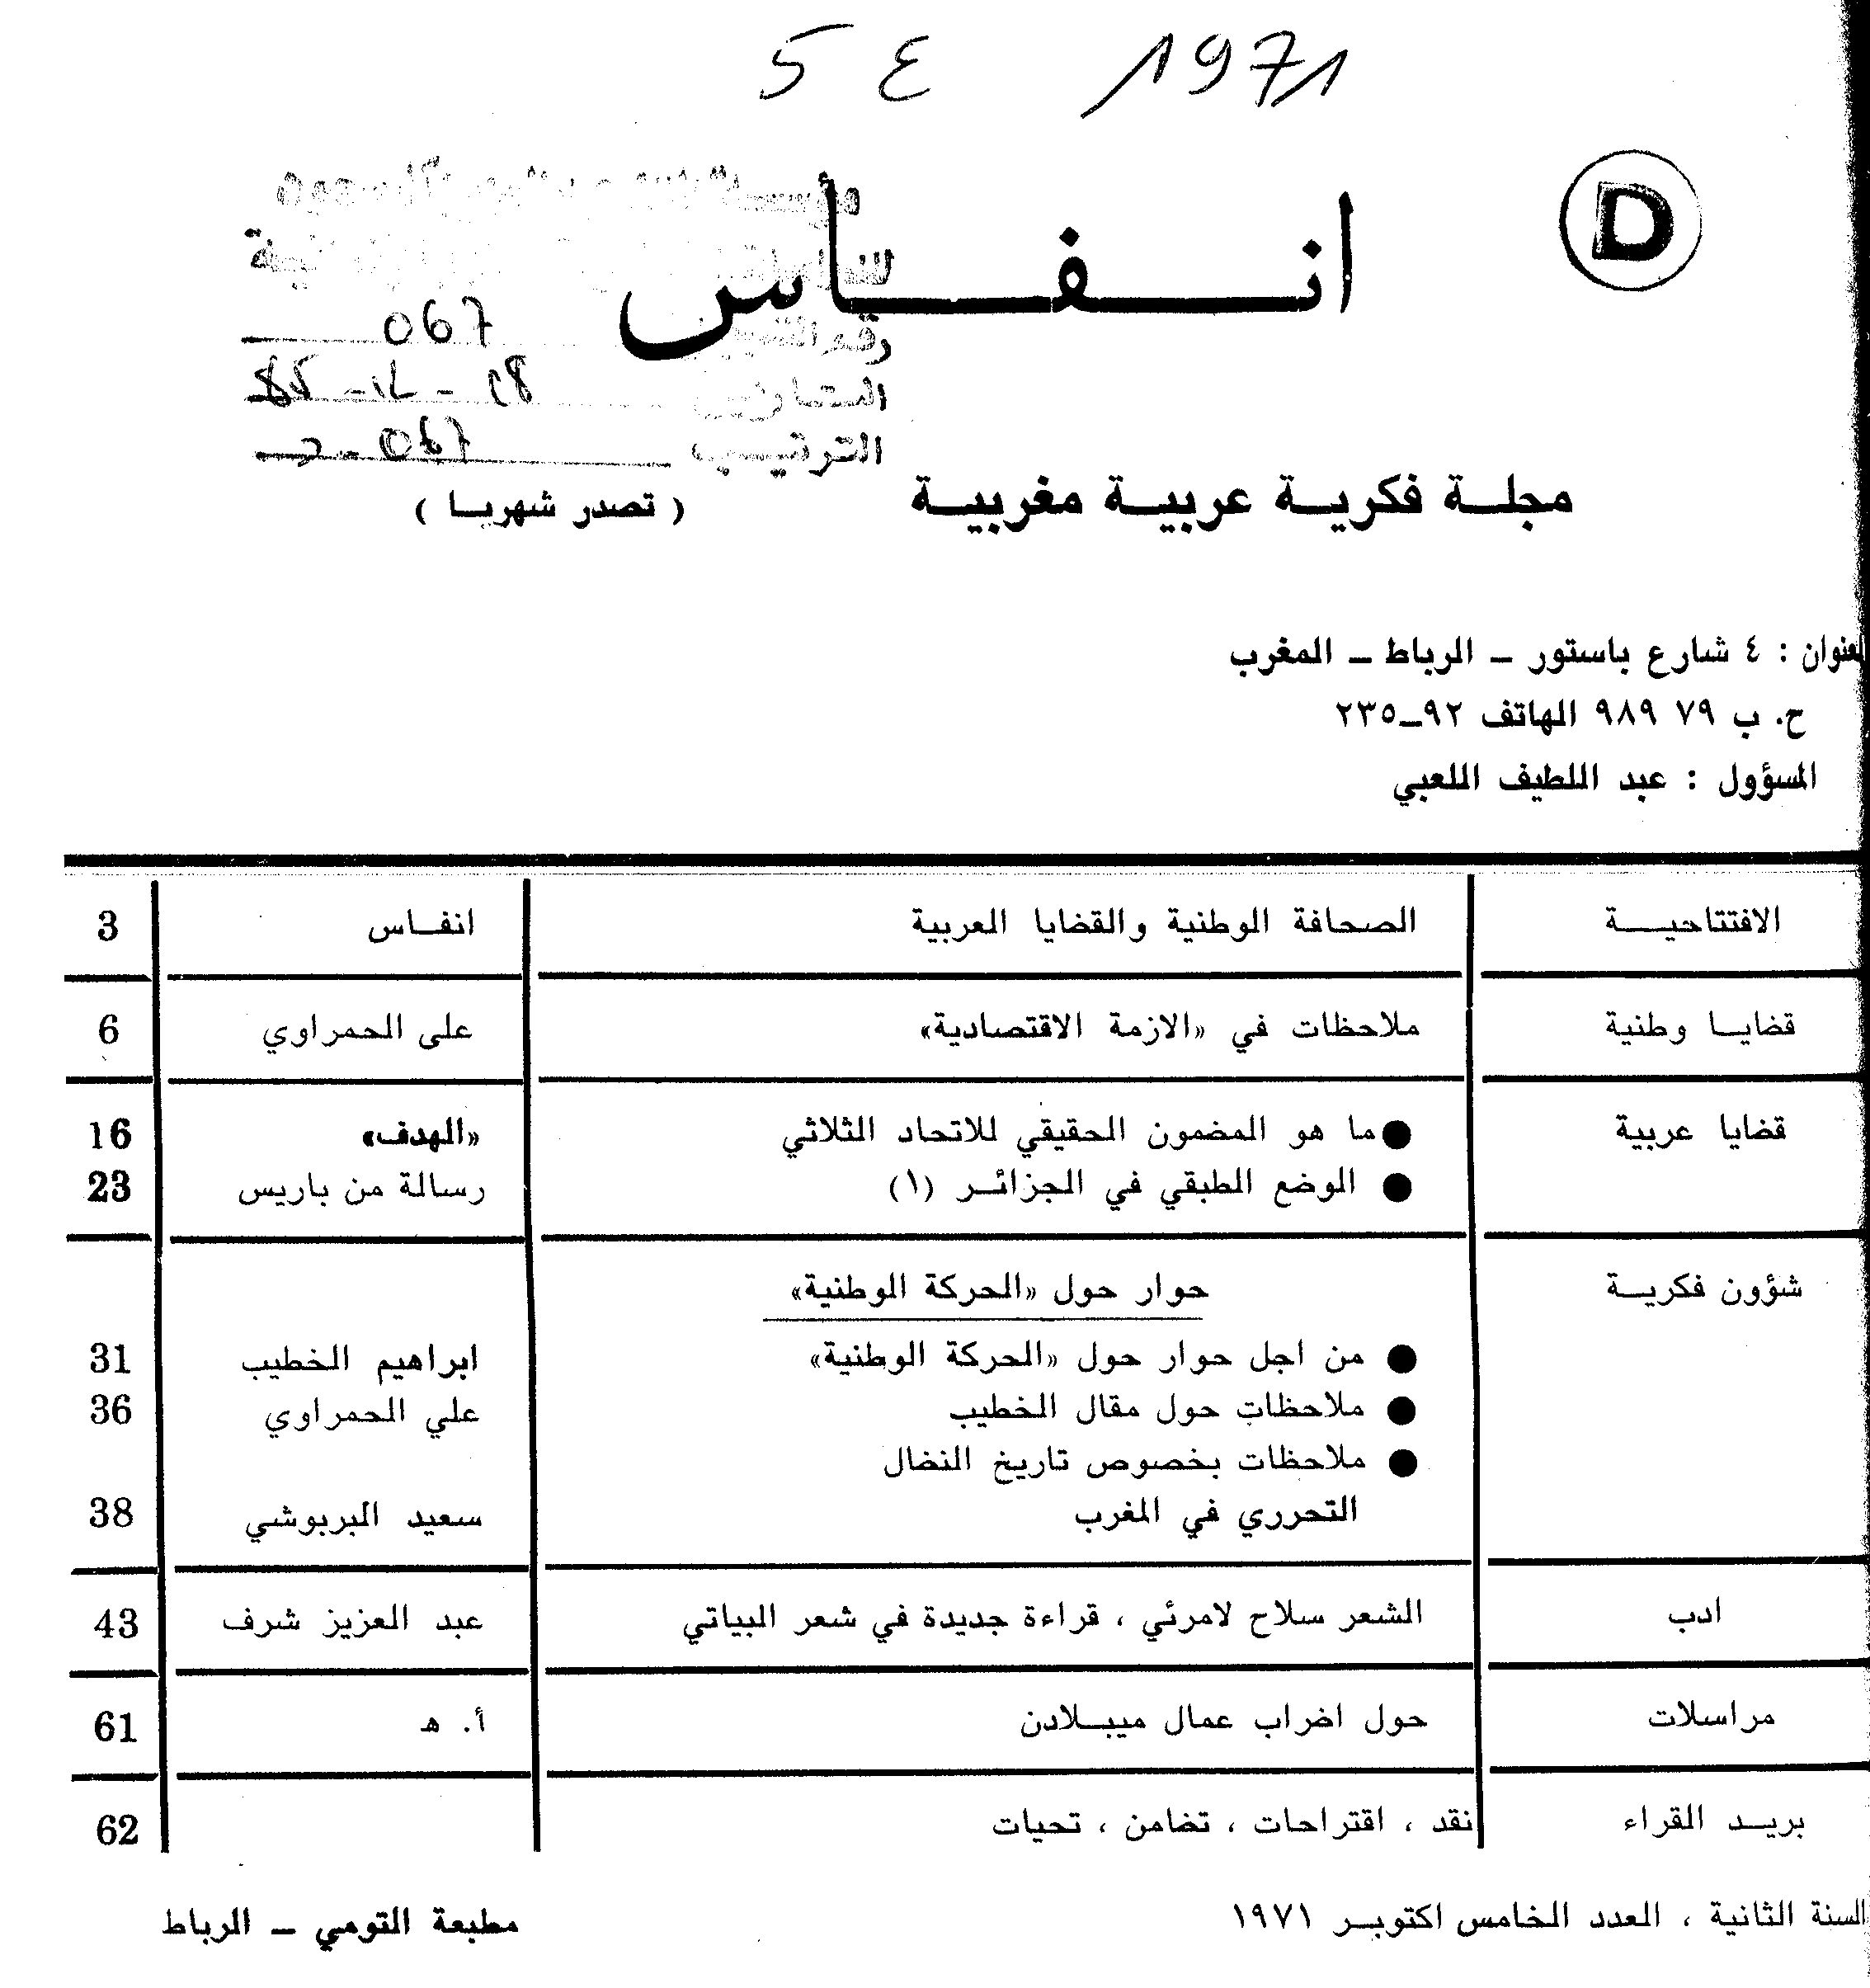 5 ع 1971
D
انفاس
مؤسسة
رقم
067
الترتيب
067
مجلة فكرية عربية مغربية
( تصدر شهريا )
العنوان : ٤ شارع باستور – الرباط – المغرب
ح. ب ٧٩ ٩٨٩ الهاتف ٩٢–٢٣٥
المسؤول : عبد اللطيف اللعبي
الافتتاحية الصحافة الوطنية والقضايا العربية انفاس 3
قضايا وطنية ملاحظات في «الازمة الاقتصادية» على الحمراوي 6
قضايا عربية ● ما هو المضمون الحقيقي للاتحاد الثلاثي «الهدف» 16
● الوضع الطبقي في الجزائر (١) رسالة من باريس 23
شؤون فكرية حوار حول «الحركة الوطنية»
● من اجل حوار حول «الحركة الوطنية» ابراهيم الخطيب 31
● ملاحظات حول مقال الخطيب علي الحمراوي 36
● ملاحظات بخصوص تاريخ النضال
التحرري في المغرب سعيد البربوشي 38
ادب الشعر سلاح لامرئي ، قراءة جديدة في شعر البياتي عبد العزيز شرف 43
مراسلات حول اضراب عمال ميبلادن أ. ه 61
بريد القراء نقد ، اقتراحات ، تضامن ، تحيات 62
السنة الثانية ، العدد الخامس اكتوبر ١٩٧١
مطبعة التومي – الرباط